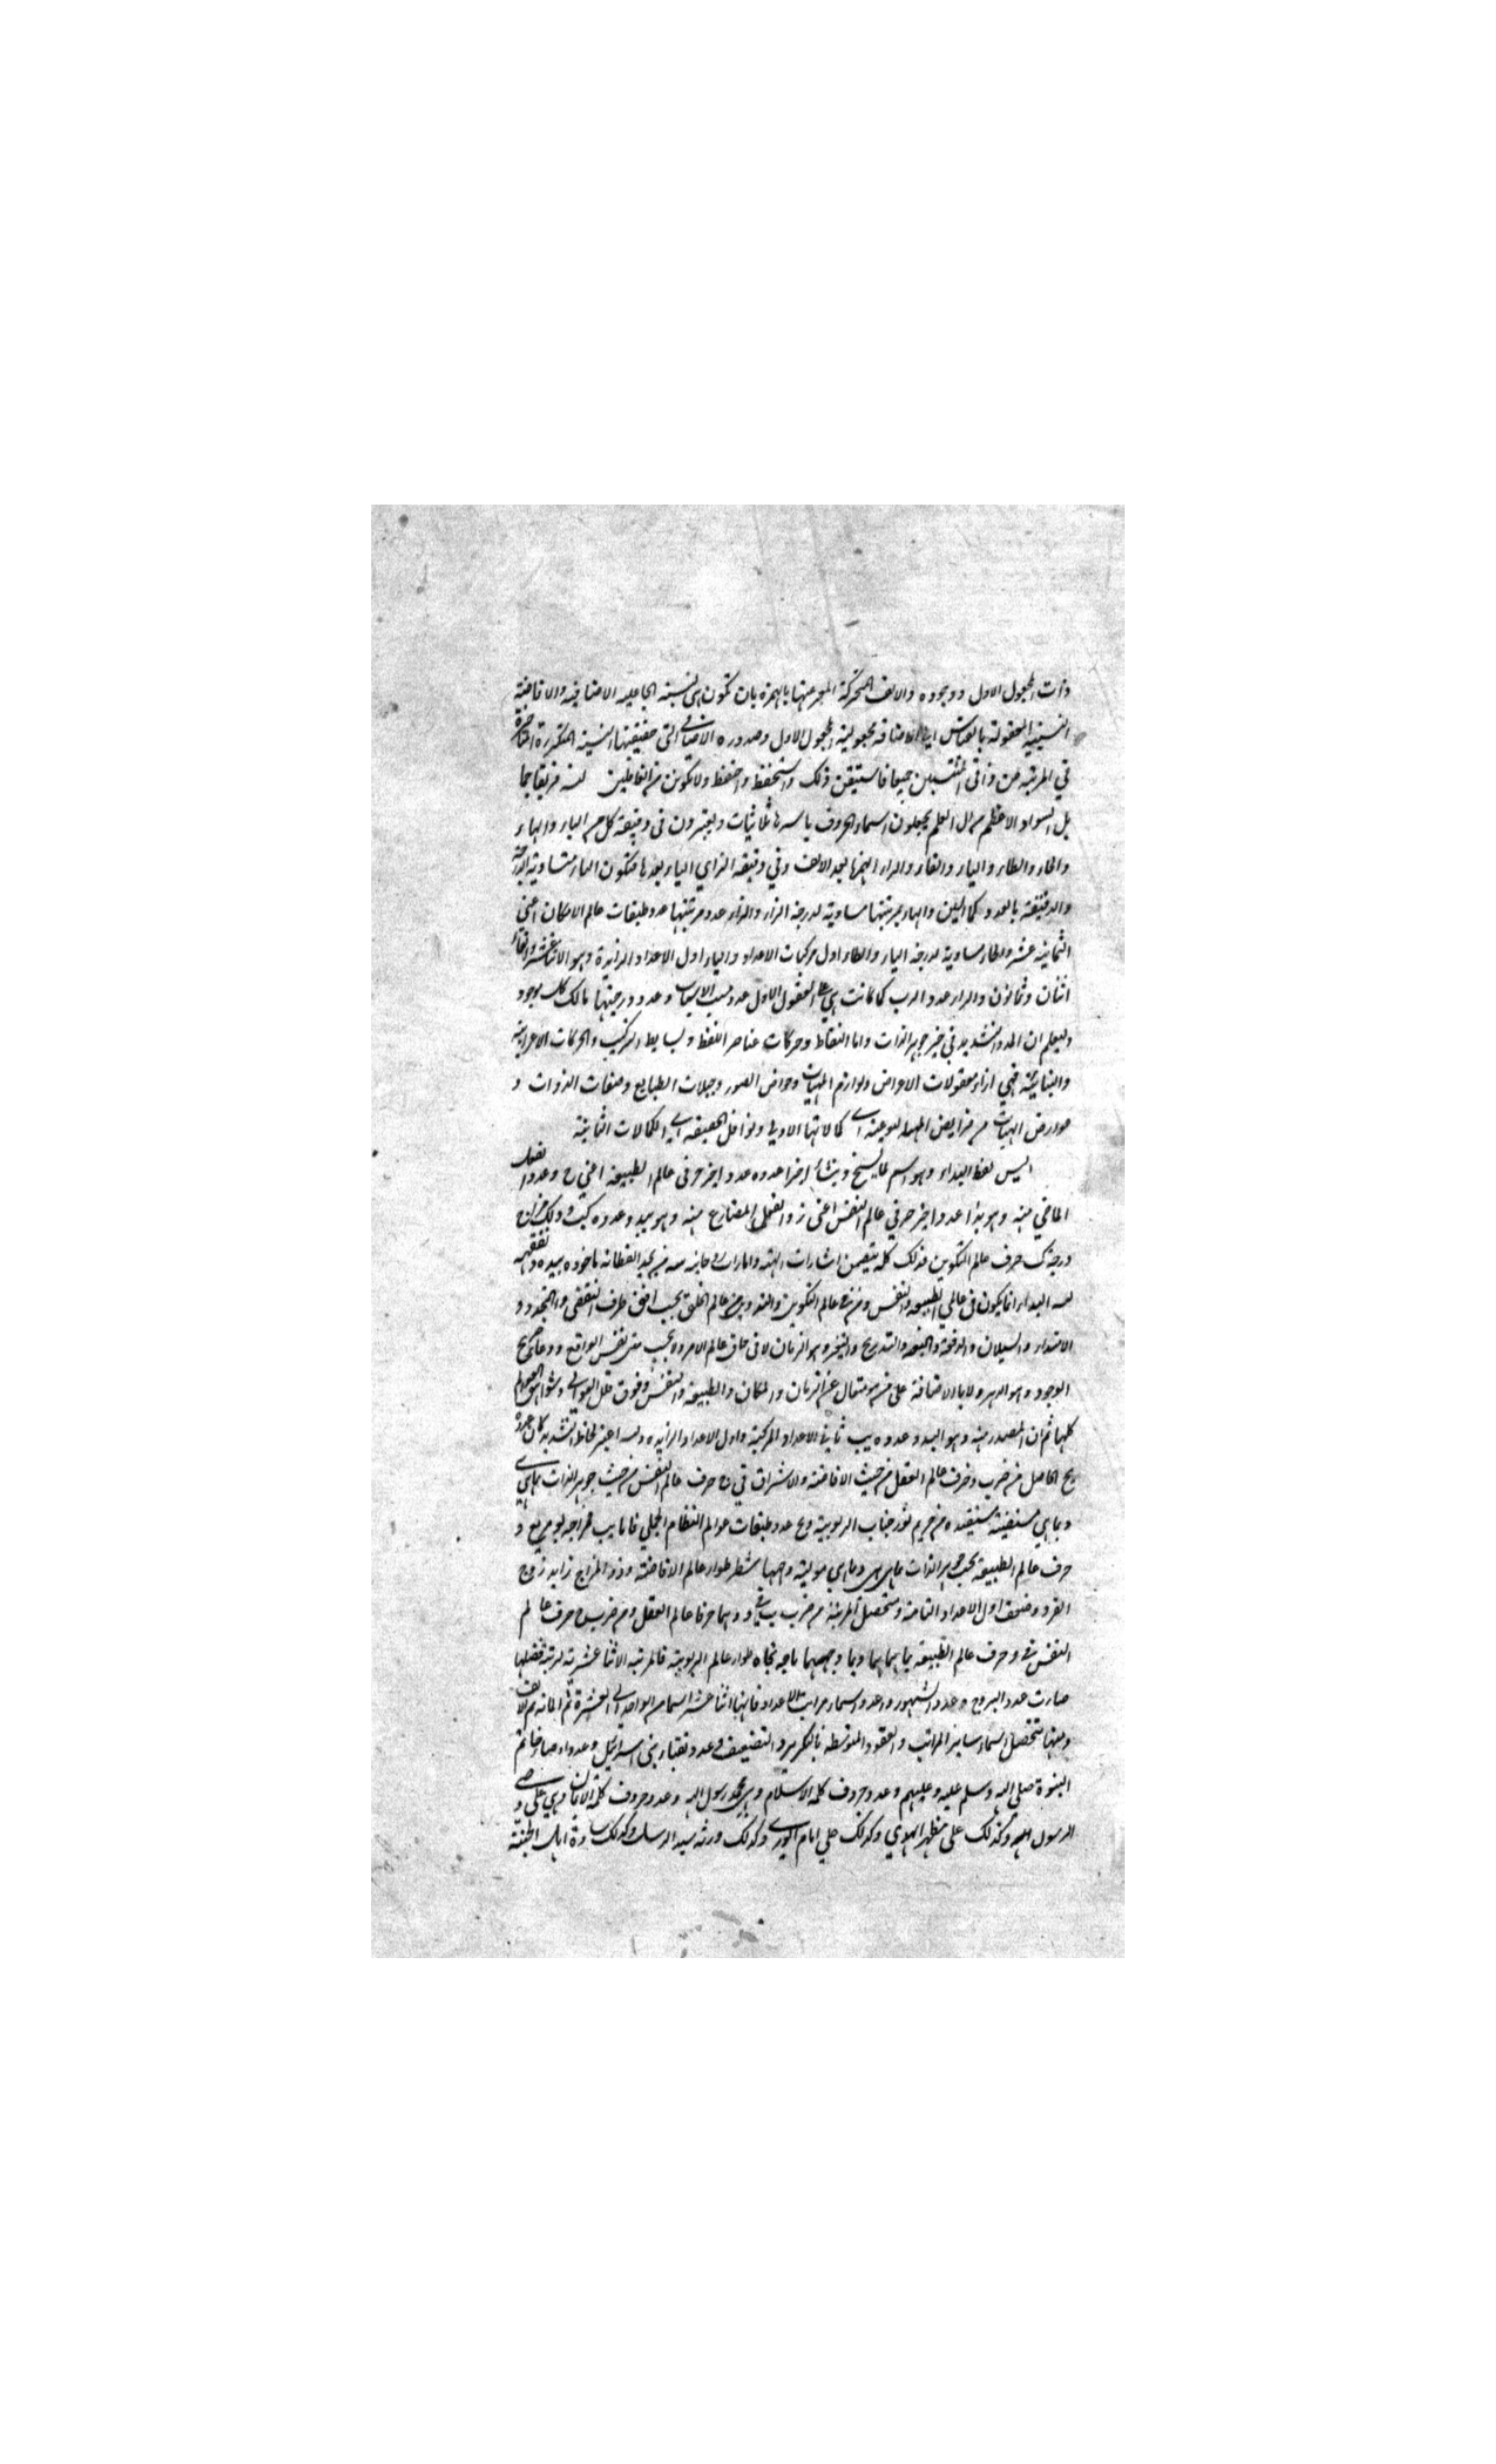 ذات المجعول الاول ووجوده والالف المتحركة المعبر منها بالهمزة بان تكون هي نسبته الجاعلية الاضافية والافاضة
النسبية المعقولة بالقياس الاضافة مجعولية المجعول الاول وصدوره الاضافي التي حقيقتها النسبة المتكررة المتاخرة
في المرتبة عن ذاتي المنتسبين جميعا فاستيقن ذلك واستحفظ واحتفظ ولا تكونن من الغافلين فريقا جما
بل السواد الاعظم من العلم يجعلون اسماء الحروف باسرها ثلاثيات ويعتبرون في دقيقة كل من الباء والهاء
والحاء والطاء والياء والفاء والراء الهمزة بعد الالف وفي دقيقة الزاي الياء بعدها فتكون الباء متساوية الدرجة
والدقيقة بالعدد كما العين والهاء بمرتبتها مساوية لدرجة الزاء والزاء عدد مرتبتها عدد طبقات عالم الامكان اعني
الثمانية عشر والحاء مساوية لدرجة الياء والطاء اول مركبات الاعداد والياء اول الاعداد الزايدة وهو الاثنا عشر والفاء
اثنان وثمانون والراء عدد الرب كما كانت هي العقول الاول عدد مسبب الاسباب وعدد درجتها مالك كل موجود
وليعلم ان المد والتشديد في حيز جوهر الذات واما النقاط وحركات عناصر اللفظ وبسايط التركيب والحركات الاعرابية
والبنائية فهي ازاء مقولات الاعراض ولوازم المهيات وعوارض الصور وجبلات الطبايع وصفات الذوات و
عوارض الهيات من فرايض المهية النوعية اي كمالاتها الاولى ونوافل الحقيقة اي الكمالات الثانية
اليس لفظ البداء وهو اسم لما يسنح وينشأ اخيرا عدده عدد اخير حرفي عالم الطبيعة اعني ح وعدد الفعل
الماضي منه وهو بدا عدد اخير حرفي عالم النفس اعني ز والفعل المضارع منه وهو يبدو عدده
ودرجة ك حرف عالم التكوين فذلك كله يتضمن اشارات الهية وامارات روحانية
البداء انما يكون في عالمي الطبيعة والنفس ومن عالم التكوين والتدوين من عالم الخلق بحسب افق ظرف التقضي والتجدد و
الامتداد والسيلان والدفعة والبغتة والتدريج والتغير وهو الزمان لا في حاق عالم الامر ولا بحسب متن نفس الواقع ووعاء صريح
الوجود وهو الدهر ولا بالاضافة على من هو متعال عن الزمان والمكان والطبيعة والنفس وفوق ظلل العوالي وشواهق العوالم
كلها ثم ان المصدر منه وهو البدو عدده يب ثاني الاعداد المركبة واول الاعداد الزايدة اعتبر لحاظ التشديد كان
يح الحاصل من ضرب و حرف عالم العقل من حيث الافاضة والاشراق في ج حرف عالم النفس من حيث جوهر الذات بما هي
وبما هي مستفيضة مستفيدة من حريم نور جناب الربوبية ويح عدد طبقات عوالم النظام الجملي فاما يب فمزاجه مربع و
حرف عالم الطبيعة بحسب جوهر الذات بما هي هي وبما هي مولية وجهها شطر طوار عالم الافاضة وذو المزاج زايد زوج
الفرد وضعف اول الاعداد التامة ومتحصل المرتبة من ضرب ب في و وهما حرفا عالم العقل ومن ضرب ج حرف عالم
النفس في د حرف عالم الطبيعة بما هما هما وبما وجههما ما جه تجاه طوار عالم الربوبية فالمرتبة الاثنا عشرية لرتبة فضلها
صارت عدد البروج وعدد الشهور وعدد اسماء مراتب الاعداد فانها اثنا عشر اسما من الواحد الى العشرة ثم المائة ثم الالف
ومنها تتحصل اسماء ساير المراتب والعقود المتوسطة بالتكرير والتضعيف وعدد نقباء بني اسرائيل وعدد اوصياء خاتم
النبوة صلى الله وسلم عليه وعليهم وعدد حروف كلمة الاسلام وهي محمد رسول الله وعدد حروف كلمة الايمان وهي علي وصي
الرسول الله وكذلك علي مظهر الهدى وكذلك علي امام الورى وكذلك ورثة سيد الرسل وكذلك سادة اهل الجنة